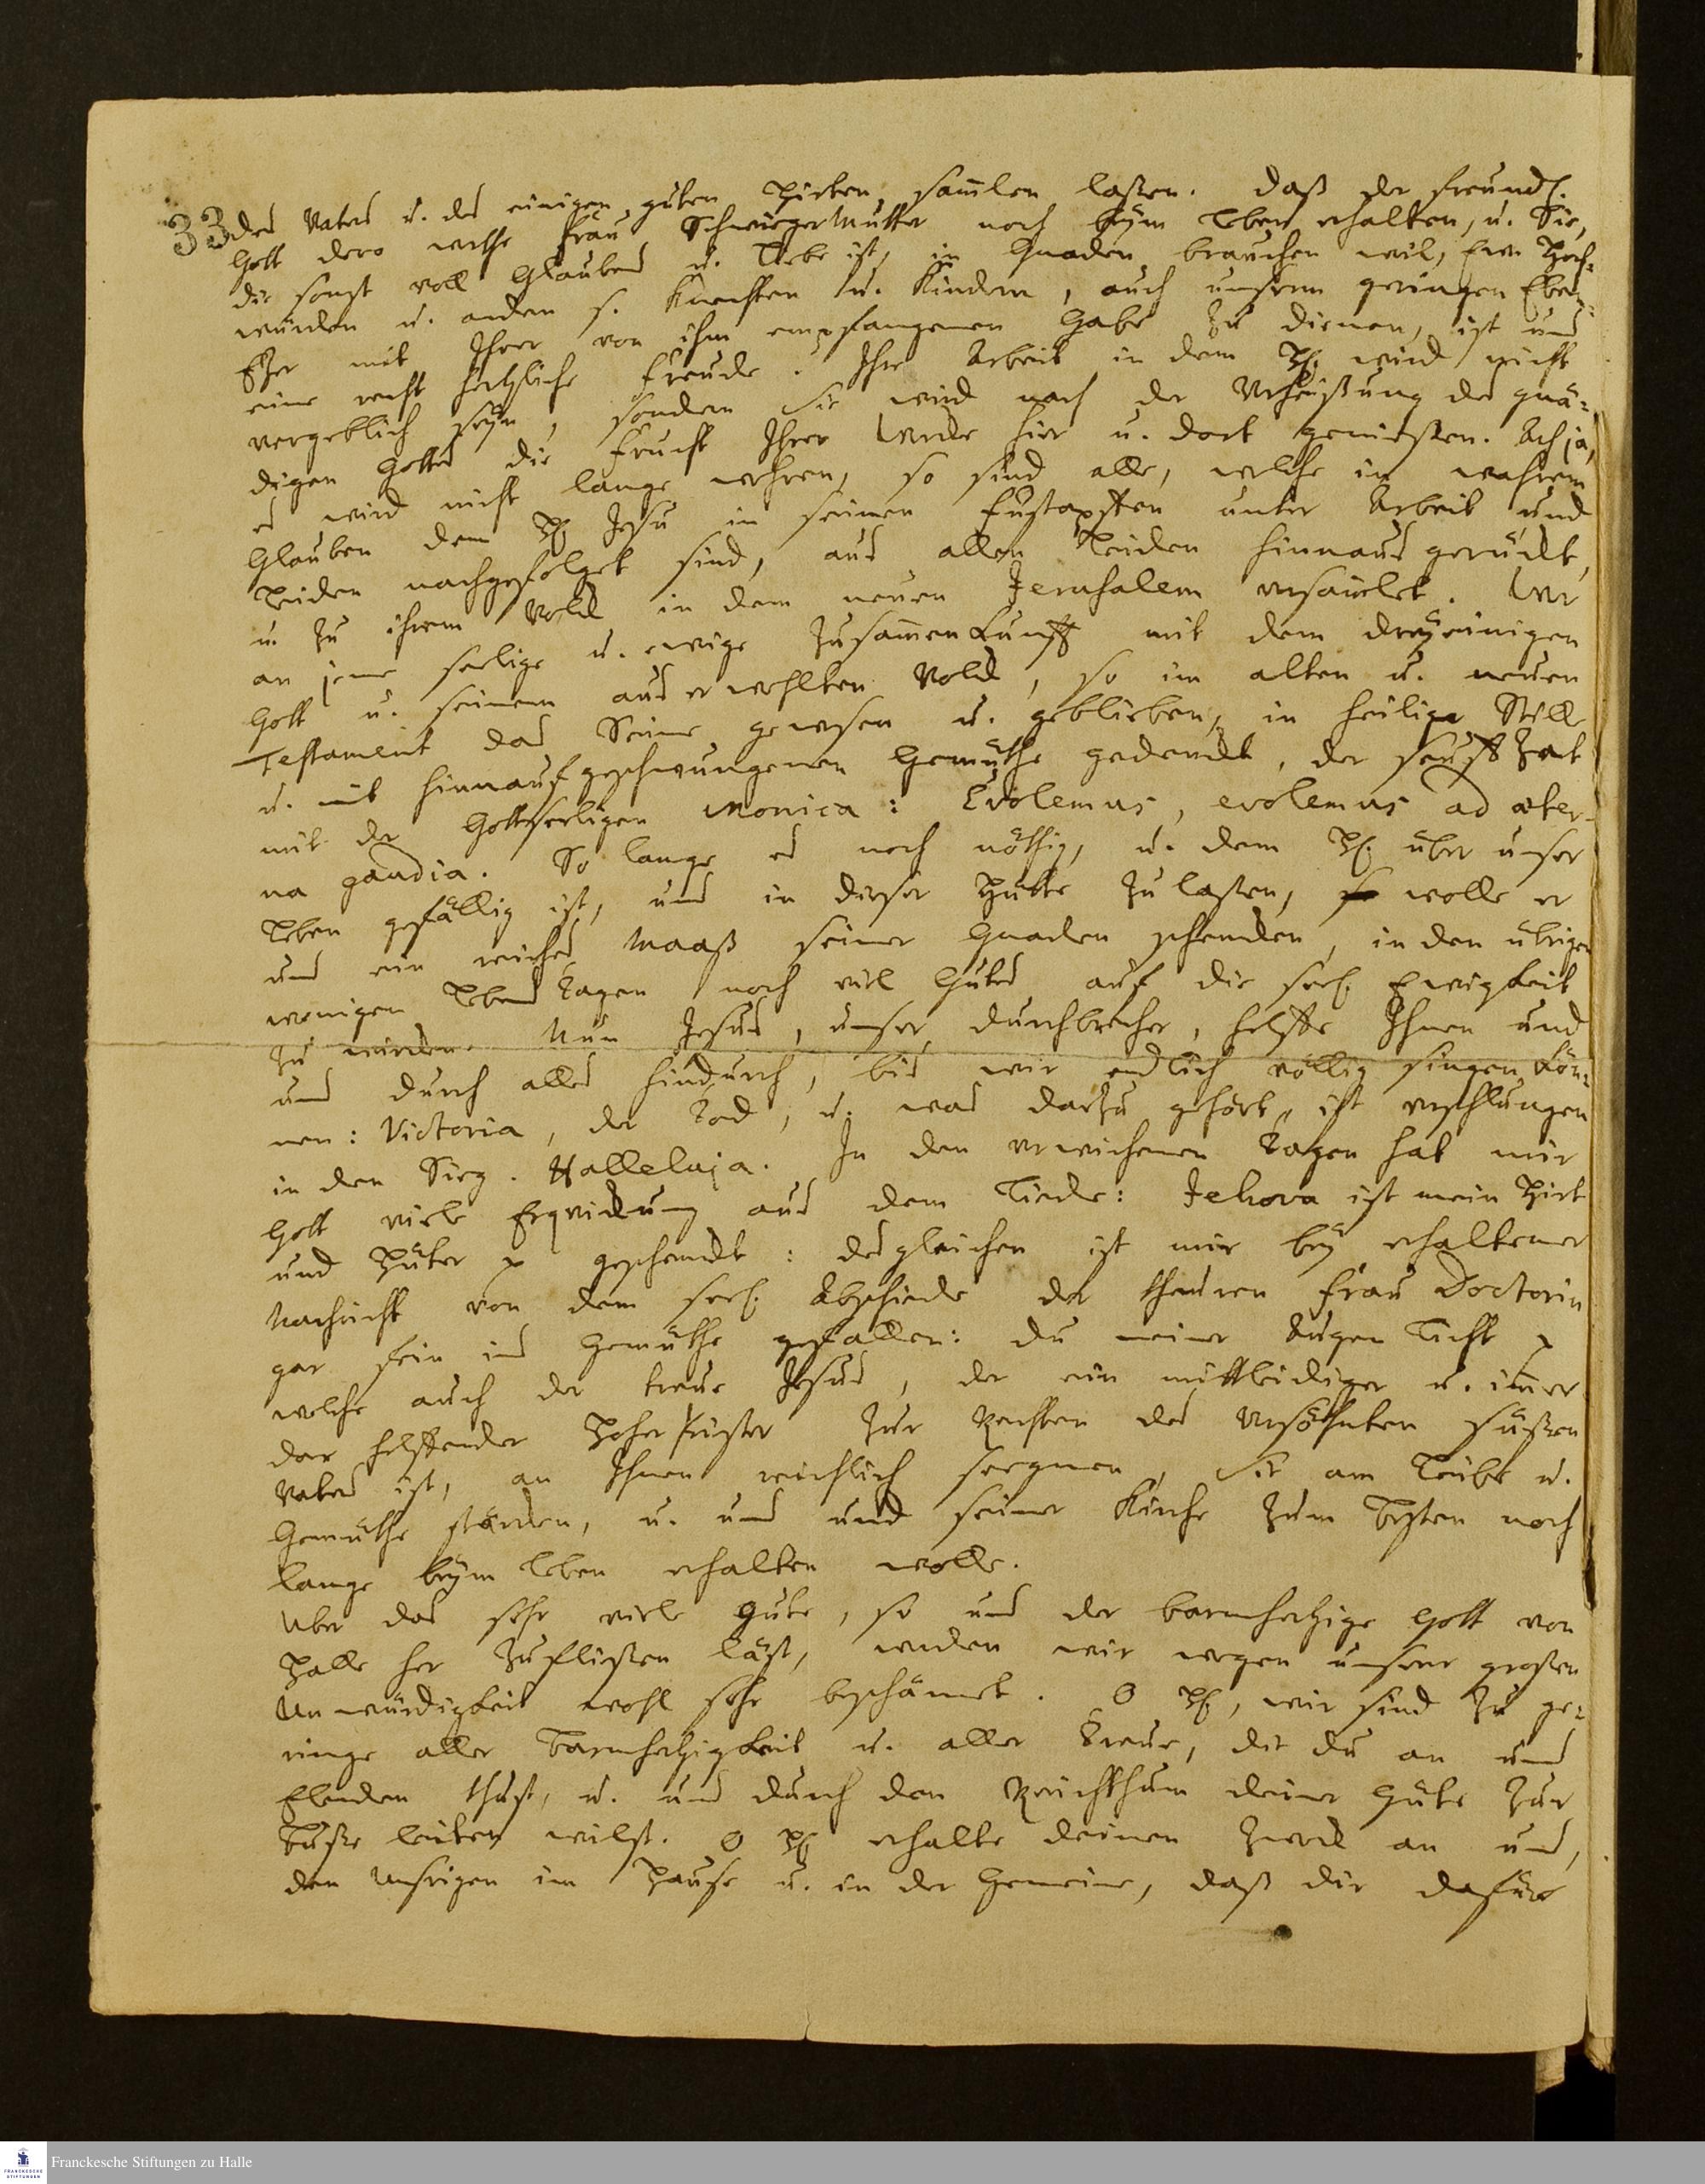 33 des Vaters u. des einigen guten Hirten, sam̅len laßen. Daß der freundl.
Gott dero werthe Frau SchwiegerMutter noch beÿm Leben erhalten, u. Sie,
die sonst voll Glaubens u. Liebe ist, in Gnaden brauchen wil, Ew. Hoch-
würden u. andern s. Knechten u. Kindern, auch unserm geringen Eben-
Ezer mit Ihrer von ihm empfangenen Gabe zu dienen, ist uns
eine recht hertzliche Freude. Ihre Arbeit in dem HErrn wird nicht
vergeblich seÿn, sondern Sie wird nach der Verheißung des gnä-
digen Gottes die Frucht Ihrer Wercke hier u. dort genießen. Ach ja,
es wird nicht lange wehren, so sind alle, welche in wahrem
Glauben dem HErrn Jesu in seinen Fußtapften unter Arbeit und
Leiden nachgefolget sind, aus allen Leiden hinnaus gerückt,
u. zu ihrem Volck in dem neuen Jerusalem versam̅let. Wer
an jene seelige u. ewige Zusam̅enkunfft mit dem dreÿeinigen
Gott u. seinem auserwehlten Volck, so im alten u. neuen
Testament das Seine gewesen u. geblieben, in heiliger Stille
u. mit hinnaufgeschwungenem Gemüthe gedenckt, der seuftzet
mit der Gottseeligen Monica: Evolemus, evolemus ad æter-
na gaudia. So lange es noch nöthig, u. dem HErrn über unser
Leben gefällig ist, uns in dieser Hütte zu laßen, so wolle er
uns ein reiches Maaß seiner Gnaden schencken, in den übrigen
wenigen Lebens Tagen noch viel Gutes auf die seel. Ewigkeit
zu wircken. Nun Jesus, unser Durchbrecher, helffe Ihnen und
uns durch alles hindurch, bis wir endlich völlig singen kön-
nen: Victoria, der Tod, u. was darzu gehört, ist verschlungen
in den Sieg. Halleluja. In den verwichenen Tagen hat mir
Gott viele Erqvickung aus dem Liede: Jehova ist mein Hirt
und Hüter p geschenckt: desgleichen ist mir beÿ erhaltener
Nachricht von dem seel. Abschiede der theuren Frau Doctorin
gar fein ins Gemüthe gefallen: Du meiner Augen Licht p
welche auch der treue Jesus, der ein mitleidiger u. im̅er
dar helffender HoherPriester zur Rechten des versöhnten süßen
Vaters ist, an Ihnen reichlich seegnen, Sie am Leibe u.
Gemüthe stärcken, u. uns und seiner Kirche zum Besten noch
lange beÿm Leben erhalten wolle.
Uber das sehr viele Gute, so uns der barmhertzige Gott von
Halle her zufließen läßt, werden wir wegen unserer großen
Unwürdigkeit wohl sehr beschämet. O HErr, wir sind zu ge-
ringe aller Barmhertzigkeit u. aller Treue, die du an uns
Elenden thust, u. uns durch den Reichthum deiner Güte zur
Buße leiten wilst. O HErr erhalte deinen Zweck an uns,
den Unsrigen im Hause u. in der Gemeine, daß dir dafür
Franckesche Stiftungen zu Halle